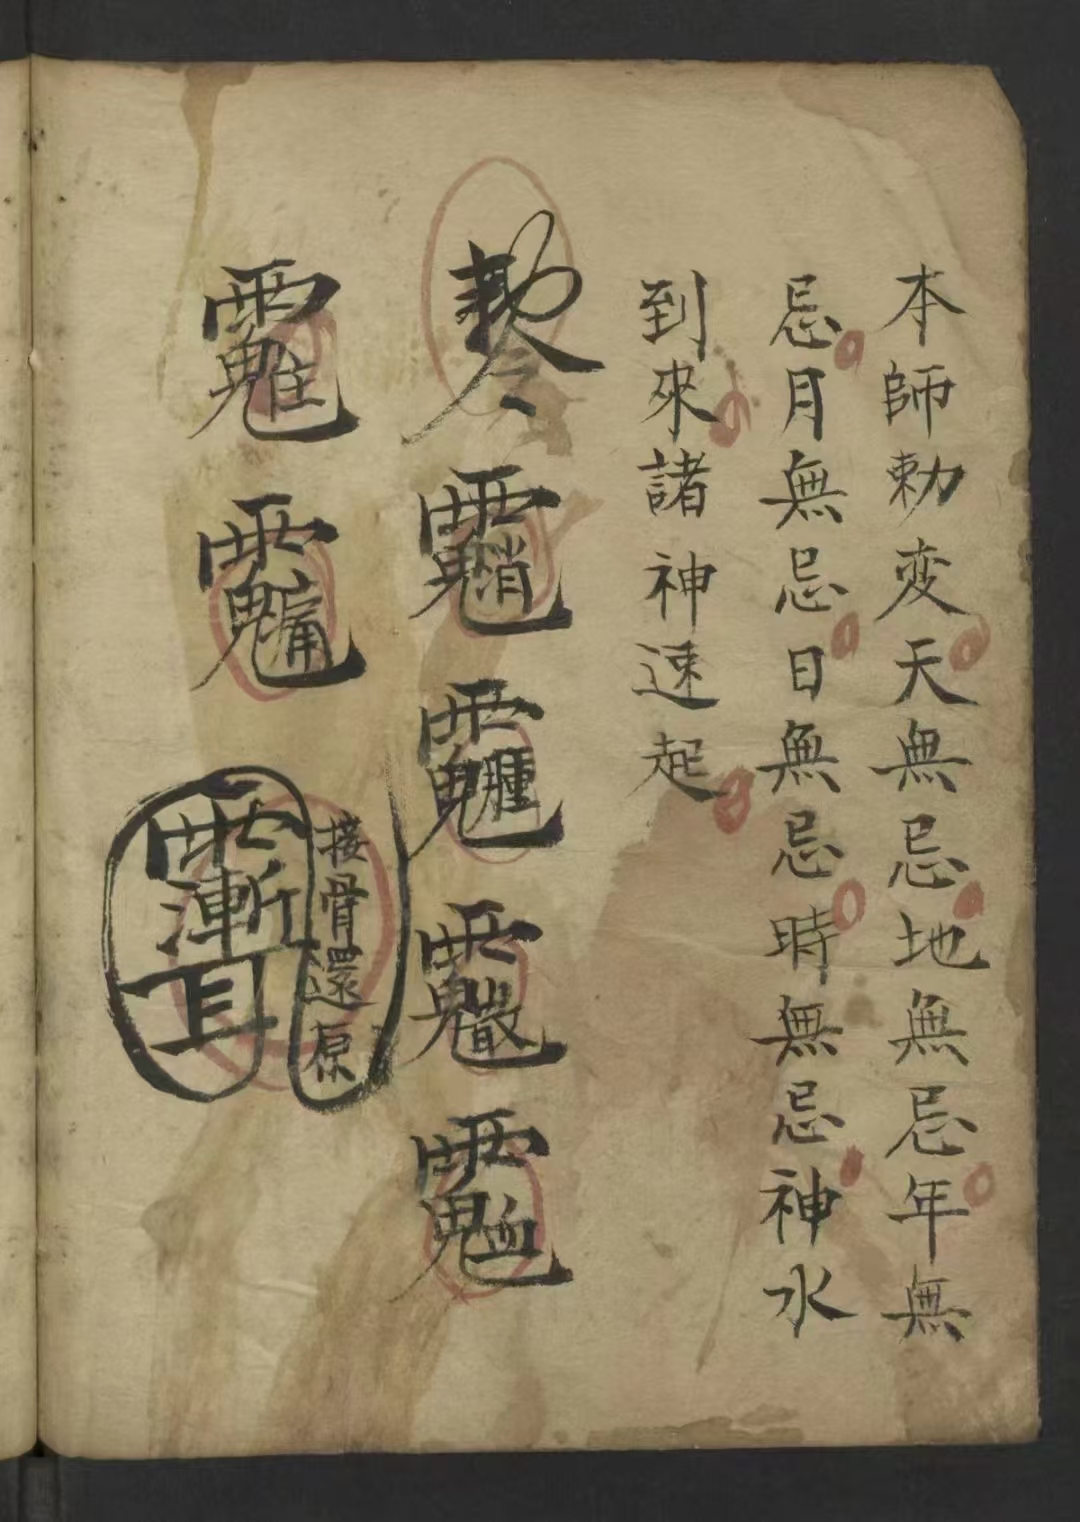 本師勅変天無忌地無忌年無
忌月無忌日無忌時無忌神水
到來諸神速起
接骨還原